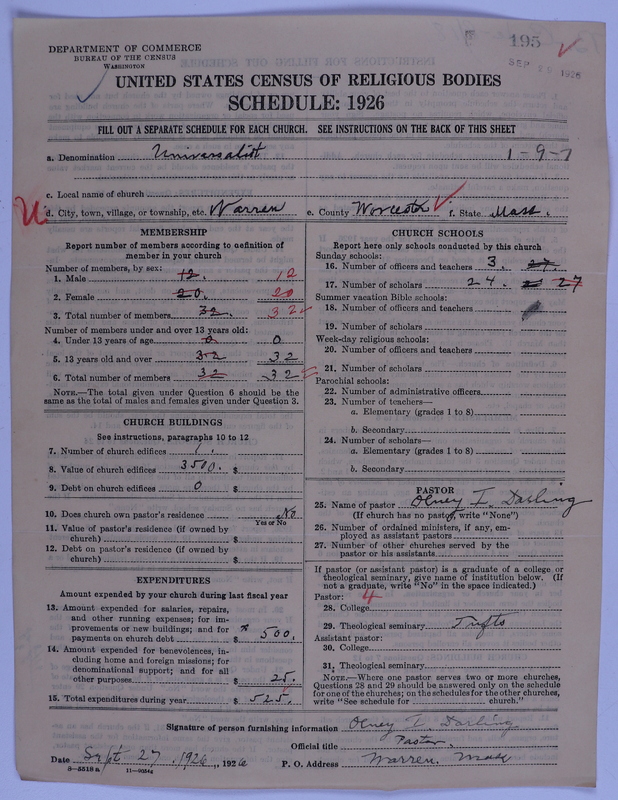 195
SEP 29 1926
DEPARTMENT OF COMMERCE
BUREAU OF THE CENSUS
WASHINGTON
UNITED STATES CENSUS OF RELIGIOUS BODIES
SCHEDULE: 1926
FILL OUT A SEPARATE SCHEDULE FOR EACH CHURCH. SEE INSTRUCTIONS ON THE BACK OF THIS SHEET
a. Denomination Universalist 1-9-7
c. Local name of church
U d. City, town, village, or township, etc. Warren e. County Worcester f. State Mass.
MEMBERSHIP
Report number of members according to definition of
member in your church
Number of members, by sex:
1. Male 12. 12
2. Female 20. 20
3. Total number of members 32. 32
Number of members under and over 13 years old:
4. Under 13 years of age 0 0
5. 13 years old and over 32 32
6. Total number of members 32 32
NOTE.—The total given under Question 6 should be
same as the total of males and females given under Question 3.
CHURCH BUILDINGS
See instructions, paragraphs 10 to 12
7. Number of church edifices 1.
8. Value of church edifices 3500. $
9. Debt on church edifices 0 $
10. Does church own pastor's residence No
Yes or No
11. Value of pastor's residence (if owned by
church) $
12. Debt on pastor's residence (if owned by
church) $
EXPENDITURES
Amount expended by your church during last fiscal year
13. Amount expended for salaries, repairs,
and other running expenses; for im-
provements or new buildings; and for
payments on church debt $ 500.
14. Amount expended for benevolences, in-
cluding home and foreign missions; for
denominational support; and for all
other purposes $ 25.
15. Total expenditures during year $ 525.
CHURCH SCHOOLS
Report here only schools conducted by this church
Sunday schools:
16. Number of officers and teachers 3. 27.
17. Number of scholars 24. 27
Summer vacation Bible schools:
18. Number of officers and teachers
19. Number of scholars
Week-day religious schools:
20. Number of officers and teachers
21. Number of scholars
Parochial schools:
22. Number of administrative officers
23. Number of teachers—
a. Elementary (grades 1 to 8)
b. Secondary
24. Number of scholars—
a. Elementary (grades 1 to 8)
b. Secondary
PASTOR
25. Name of pastor Olney I. Darling
(If church has no pastor, write "None")
26. Number of ordained ministers, if any, em-
ployed as assistant pastors
27. Number of other churches served by the
pastor or his assistants
If pastor (or assistant pastor) is a graduate of a college or
theological seminary, give name of institution below. (If
not a graduate, write "No" in the space indicated.)
Pastor: 4
28. College
29. Theological seminary Tufts
Assistant pastor:
30. College
31. Theological seminary
NOTE.—Where one pastor serves two or more churches,
Questions 28 and 29 should be answered only on the schedule
for one of the churches; on the schedules for the other churches,
write "See schedule for church."
Signature of person furnishing information Olney I. Darling
Official title Pastor.
Date Sept 27, 1926, 1926 P. O. Address Warren, Mass
8—5518a 11—9054